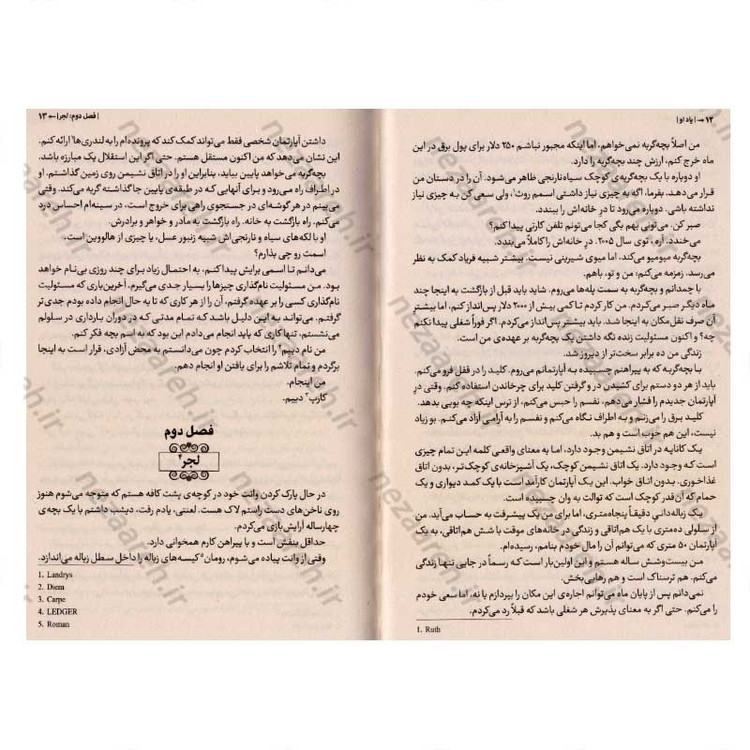 ۱۲ → | یاد او |
من اصلاً بچه‌گربه نمی‌خواهم، اما اینکه مجبور نباشم ۲۵۰ دلار برای پول برق در این
ماه خرج کنم، ارزش چند بچه‌گربه را دارد.
او دوباره با یک بچه‌گربه‌ی کوچک سیاه‌نارنجی ظاهر می‌شود. آن را در دستان من
قرار می‌دهد. بفرما، اگه به چیزی نیاز داشتی اسمم روث¹، ولی سعی کن به چیزی نیاز
نداشته باشی. دوباره می‌رود تا در خانه‌اش را ببندد.
صبر کن. می‌تونی بهم بگی کجا می‌تونم تلفن کارتی پیدا کنم؟
می‌خندد. آره، توی سال ۲۰۰۵. در خانه‌اش را کاملاً می‌بندد.
بچه‌گربه میومیو می‌کند، اما میوی شیرینی نیست. بیشتر شبیه فریاد کمک به نظر
می‌رسد. زمزمه می‌کنم؛ من و تو، باهم.
با چمدانم و بچه‌گربه به سمت پله‌ها می‌روم. شاید باید قبل از بازگشت به اینجا چند
ماه دیگر صبر می‌کردم. من کار کردم تا کمی بیش از ۲۰۰۰ دلار پس‌انداز کنم، اما بیشتر
آن صرف نقل‌مکان به اینجا شد. باید بیشتر پس‌انداز می‌کردم. اگر فوراً شغلی پیدا نکنم
چه؟ و اکنون مسئولیت زنده نگه داشتن یک بچه‌گربه بر عهده‌ی من است.
زندگی من ده برابر سخت‌تر از دیروز شد.
با بچه‌گربه که به پیراهنم چسبیده به آپارتمانم می‌روم. کلید را در قفل فرو می‌کنم.
باید از هر دو دستم برای کشیدن در و گرفتن کلید برای چرخاندن استفاده کنم. وقتی در
آپارتمان جدیدم را فشار می‌دهم، نفسم را حبس می‌کنم، از ترس اینکه چه بویی بدهد.
کلید برق را می‌زنم و به اطراف نگاه می‌کنم و نفسم را به آرامی آزاد می‌کنم. بو زیاد
نیست، این هم خوب است و هم بد.
یک کاناپه در اتاق نشیمن وجود دارد، اما به معنای واقعی کلمه این تمام چیزی
است که وجود دارد. یک اتاق نشیمن کوچک، یک آشپزخانه‌ی کوچک‌تر، بدون اتاق
غذاخوری، بدون اتاق خواب. این یک آپارتمان کارآمد است با یک کمد دیواری و یک
حمام که آن‌قدر کوچک است که توالت به وان چسبیده است.
یک زباله‌دانی دقیقاً پنجاه‌متری، اما برای من یک پیشرفت به حساب می‌آید. من
از سلولی ده‌متری با یک هم‌اتاقی و زندگی در خانه‌های موقت با شش هم‌اتاقی، به یک
آپارتمان ۵۰ متری که می‌توانم آن را مال خودم بنامم، رسیده‌ام.
من بیست‌وشش ساله هستم و این اولین‌بار است که رسماً در جایی تنها زندگی
می‌کنم. هم ترسناک است و هم رهایی‌بخش.
نمی‌دانم پس از پایان ماه می‌توانم اجاره‌ی این مکان را بپردازم یا نه، اما سعی خودم
را می‌کنم. حتی اگر به معنای پذیرش هر شغلی باشد که قبلاً رد می‌کردم.
1. Ruth
| فصل دوم: لجر | ← ۱۳
داشتن آپارتمان شخصی فقط می‌تواند کمک کند که پرونده‌ام را به لندری‌ها¹ ارائه کنم.
این نشان می‌دهد که من اکنون مستقل هستم. حتی اگر این استقلال یک مبارزه باشد.
بچه‌گربه می‌خواهد پایین بیاید، بنابراین او را در اتاق نشیمن روی زمین گذاشتم. او
در اطراف راه می‌رود و برای آنهایی که در طبقه‌ی پایین جا گذاشته گریه می‌کند. وقتی
می‌بینم در هر گوشه‌ای در جستجوی راهی برای خروج است، در سینه‌ام احساس درد
می‌کنم. راه بازگشت به خانه. راه بازگشت به مادر و خواهر و برادرش.
او با لکه‌های سیاه و نارنجی‌اش شبیه زنبور عسل، یا چیزی از هالووین است.
اسمت رو چی بذارم؟
می‌دانم تا اسمی برایش پیدا کنم، به احتمال زیاد برای چند روزی بی‌نام خواهد
بود. من مسئولیت نام‌گذاری چیزها را بسیار جدی می‌گیرم. آخرین‌باری که مسئولیت
نام‌گذاری کسی را بر عهده گرفتم، آن را از هر کاری که تا به حال انجام داده بودم جدی‌تر
گرفتم. می‌تواند به این دلیل باشد که تمام مدتی که در دوران بارداری در سلولم
می‌نشستم، تنها کاری که باید انجام می‌دادم این بود که به اسم بچه فکر کنم.
من نام دییم² را انتخاب کردم چون می‌دانستم به محض آزادی، قرار است به اینجا
برگردم و تمام تلاشم را برای یافتن او انجام دهم.
من اینجام.
کارپ³ دییم.
فصل دوم
لجر⁴
در حال پارک کردن وانت خود در کوچه‌ی پشت کافه هستم که متوجه می‌شوم هنوز
روی ناخن‌های دست راستم لاک هست. لعنتی، یادم رفت، دیشب داشتم با یک بچه‌ی
چهارساله آرایش‌بازی می‌کردم.
حداقل بنفش است و با پیراهن کارم همخوانی دارد.
وقتی از وانت پیاده می‌شوم، رومان⁵ کیسه‌های زباله را داخل سطل زباله می‌اندازد.
1. Landrys
2. Diem
3. Carpe
4. LEDGER
5. Roman
nezaaleh.ir